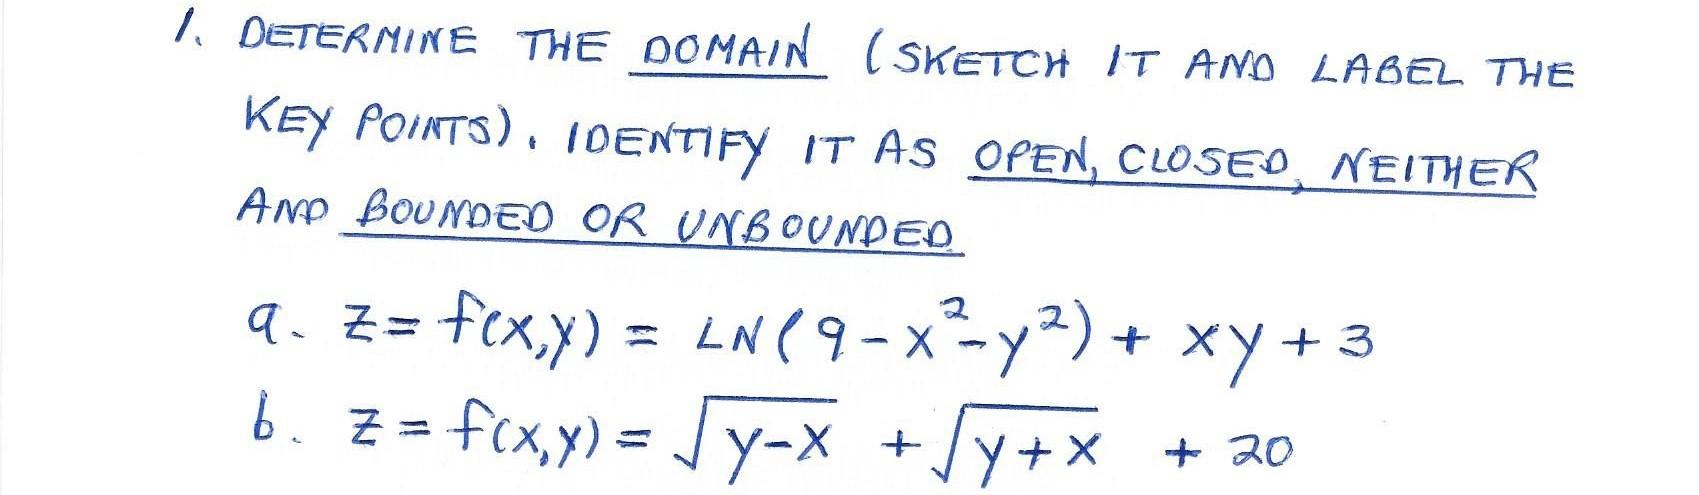 1. DETERMINE THE DOMAIN (SKETCH IT AND LABEL THE
KEY POINTS). IDENTIFY IT AS OPEN, CLOSED, NEITHER
AND BOUNDED OR UNBOUNDED
a. z = f(x,y) = LN(9-x²-y²) + xy + 3
b. z = f(x,y) = √(y-x) + √(y+x) + 20